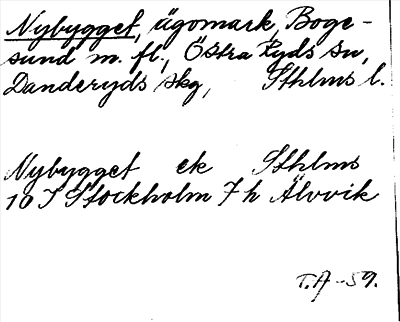 Nybygget, ägomark, Boge-
sund m. fl., Östra Ryds sn,
Danderyds skg, Sthlms l.
Nybygget ek Sthlms
10 I Stockholm 7 h Älvvik
T.A -59.